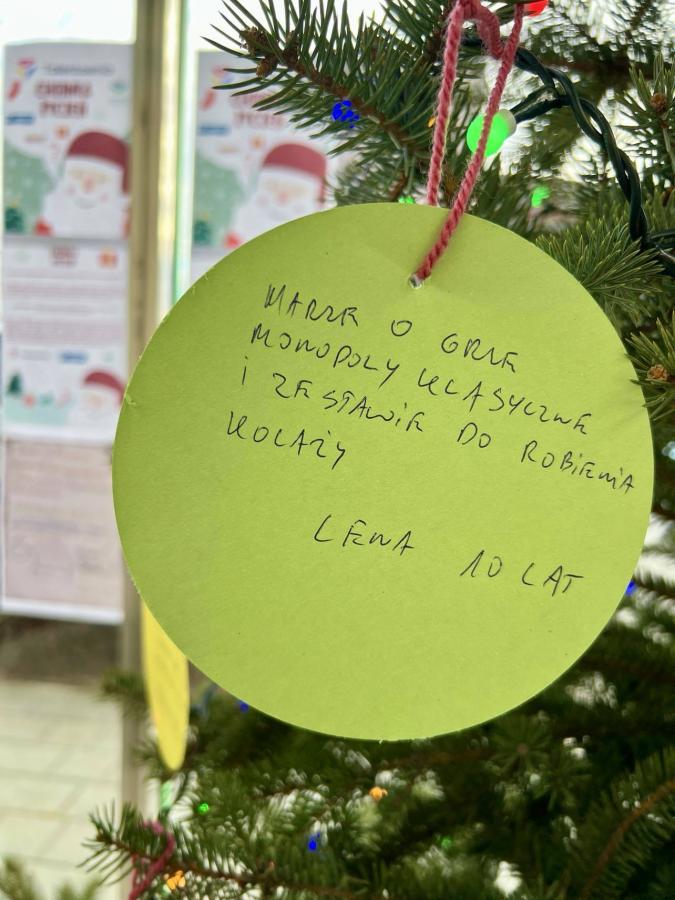 MARZE O GRZE
MONOPOLY KLASYCZNE
i ZESTAWIE DO ROBiENiA
KOLAŻY
LENA 10 LAT